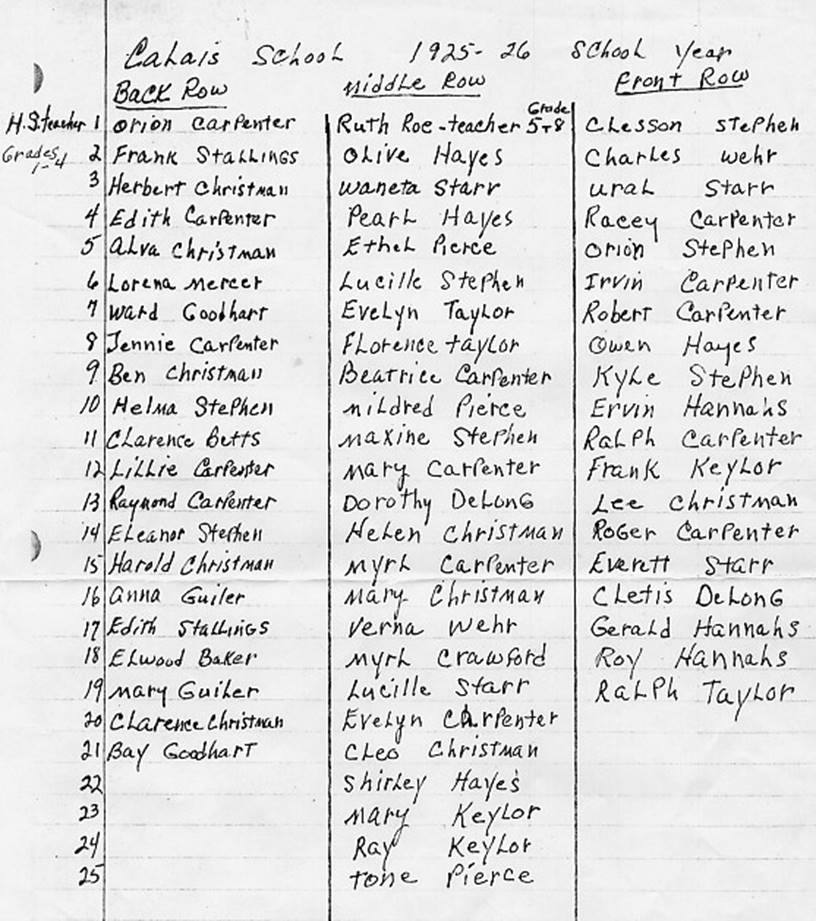 Calais School 1925-26 School Year
Back Row Middle Row Front Row
Grade
H.S. teacher 1 Orion Carpenter Ruth Roe-teacher 5-8 Clesson Stephen
Grades 1-4 2 Frank Stallings Olive Hayes Charles Wehr
3 Herbert Christman Waneta Starr Ural Starr
4 Edith Carpenter Pearl Hayes Racey Carpenter
5 Alva Christman Ethel Pierce Orion Stephen
6 Lorena Mercer Lucille Stephen Irvin Carpenter
7 Ward Goodhart Evelyn Taylor Robert Carpenter
8 Jennie Carpenter Florence Taylor Owen Hayes
9 Ben Christman Beatrice Carpenter Kyle Stephen
10 Helma Stephen Mildred Pierce Ervin Hannahs
11 Clarence Betts Maxine Stephen Ralph Carpenter
12 Lillie Carpenter Mary Carpenter Frank Keylor
13 Raymond Carpenter Dorothy DeLong Lee Christman
14 Eleanor Stephen Helen Christman Roger Carpenter
15 Harold Christman Myrl Carpenter Everett Starr
16 Anna Guiler Mary Christman Cletis DeLong
17 Edith Stallings Verna Wehr Gerald Hannahs
18 Elwood Baker Myrl Crawford Roy Hannahs
19 Mary Guiler Lucille Starr Ralph Taylor
20 Clarence Christman Evelyn Carpenter
21 Bay Goodhart Cleo Christman
22 Shirley Hayes
23 Mary Keylor
24 Ray Keylor
25 Tone Pierce